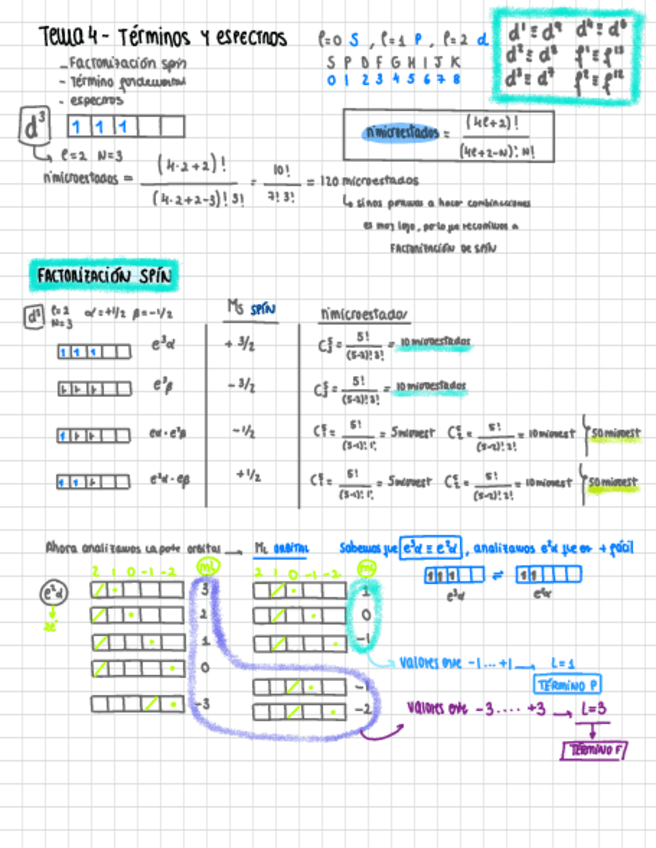 Tema 4 - Términos y espectros
l=0 S , l=1 P , l=2 d
S P D F G H I J K
0 1 2 3 4 5 6 7 8
d¹ ≡ d⁹ d⁴ ≡ d⁶
d² ≡ d⁸ f¹ ≡ f¹³
d³ ≡ d⁷ f² ≡ f¹²
- Factorización spin
- Término fundamental
- espectros
d³ 1 1 1
l=2 N=3
nºmicroestados = (4l+2)! / (4l+2-N)! N!
nºmicroestados = (4·2+2)! / (4·2+2-3)! 3! = 10! / 7! 3! = 120 microestados
↳ si nos ponemos a hacer combinaciones
es muy largo, por lo que recurrimos a
FACTORIZACIÓN DE SPÍN
FACTORIZACIÓN SPÍN
d³ l=2 N=3 α=+1/2 β=-1/2
Ms SPÍN
nºmicroestados
1 1 1 e³α +3/2 = 5! / (5-3)! 3! = 10 microestados
e³β -3/2 = 5! / (5-3)! 3! = 10 microestados
eα · e²β -1/2 = 5! / (5-1)! 1! = 5 microest = 5! / (5-2)! 2! = 10 microest 50 microest
e²α · eβ +1/2 = 5! / (5-1)! 1! = 5 microest = 5! / (5-2)! 2! = 10 microest 50 microest
Ahora analizamos la parte orbital → ML ORBITAL
Sabemos que e³α ≡ e²α , analizamos e²α que es + fácil
1 1 1 ⇌ 1 1
e³α e²α
e²α
2 1 0 -1 -2 ML
2 1 0 -1 -2 ML
3 1
2 0
1 -1
0 -1
-3 -2
valores entre -1 ... +1 → L=1
TÉRMINO P
valores entre -3 .... +3 → L=3
TÉRMINO F